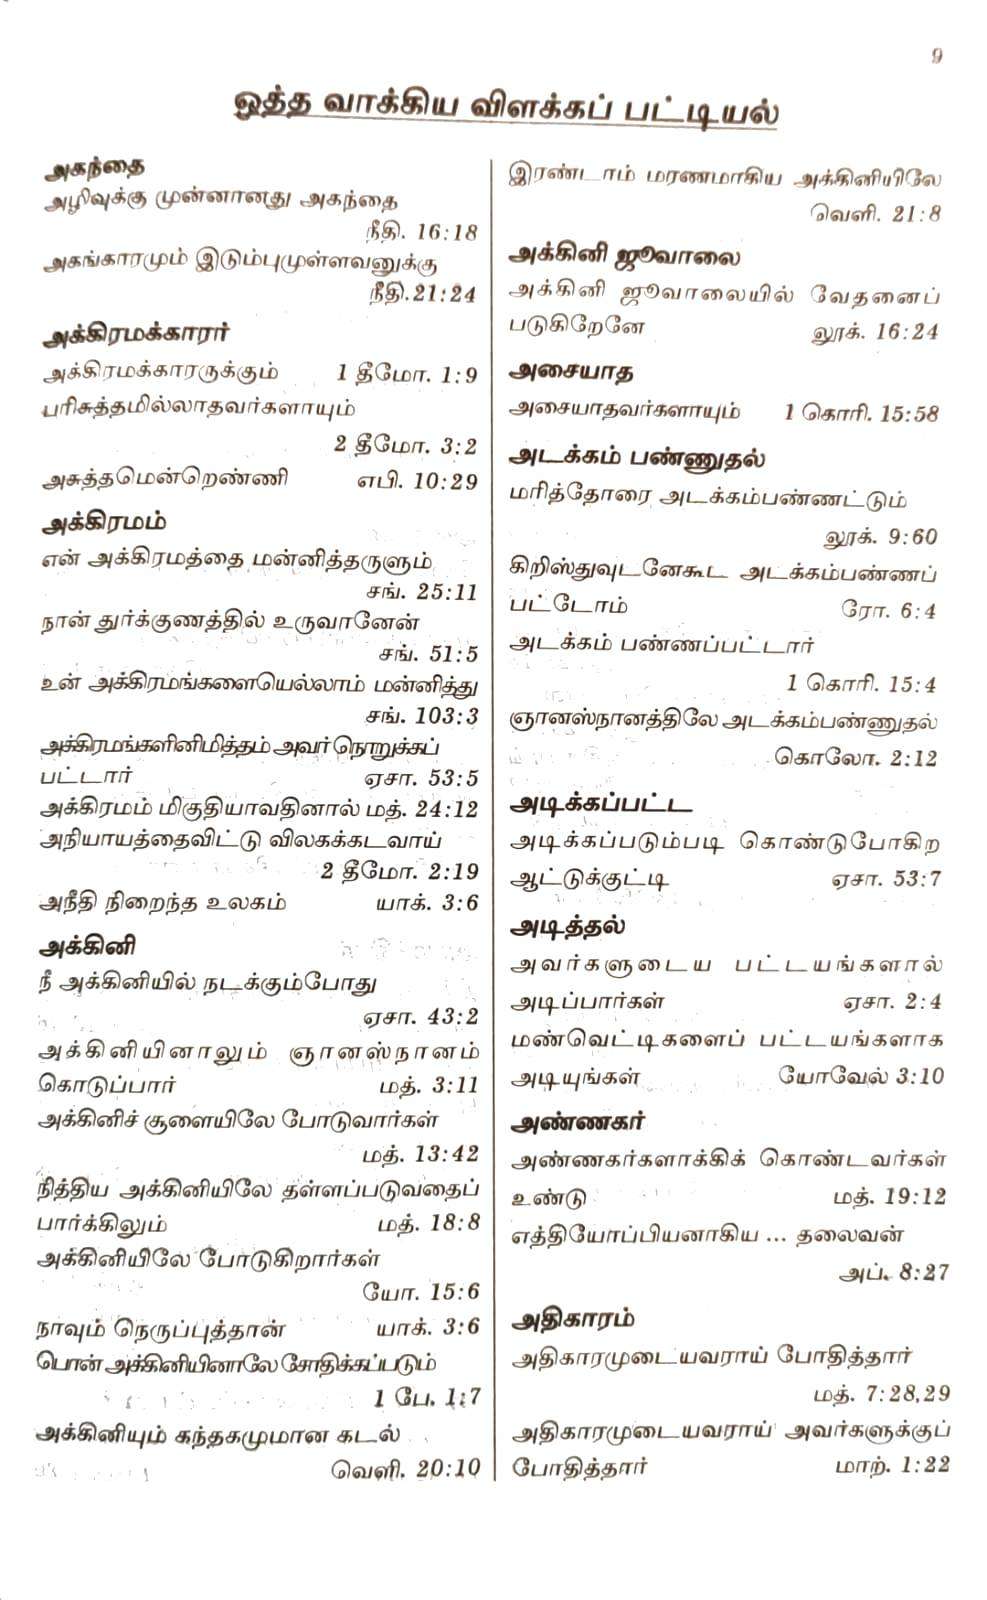 9
ஒத்த வாக்கிய விளக்கப் பட்டியல்
அகந்தை
அழிவுக்கு முன்னானது அகந்தை
நீதி. 16:18
அகங்காரமும் இடும்புமுள்ளவனுக்கு
நீதி.21:24
அக்கிரமக்காரர்
அக்கிரமக்காரருக்கும் 1 தீமோ. 1:9
பரிசுத்தமில்லாதவர்களாயும்
2 தீமோ. 3:2
அசுத்தமென்றெண்ணி எபி. 10:29
அக்கிரமம்
என் அக்கிரமத்தை மன்னித்தருளும்
சங். 25:11
நான் துர்க்குணத்தில் உருவானேன்
சங். 51:5
உன் அக்கிரமங்களையெல்லாம் மன்னித்து
சங். 103:3
அக்கிரமங்களினிமித்தம் அவர் நொறுக்கப்
பட்டார் ஏசா. 53:5
அக்கிரமம் மிகுதியாவதினால் மத். 24:12
அநியாயத்தைவிட்டு விலகக்கடவாய்
2 தீமோ. 2:19
அநீதி நிறைந்த உலகம் யாக். 3:6
அக்கினி
நீ அக்கினியில் நடக்கும்போது
ஏசா. 43:2
அக்கினியினாலும் ஞானஸ்நானம்
கொடுப்பார் மத். 3:11
அக்கினிச் சூளையிலே போடுவார்கள்
மத். 13:42
நித்திய அக்கினியிலே தள்ளப்படுவதைப்
பார்க்கிலும் மத். 18:8
அக்கினியிலே போடுகிறார்கள்
யோ. 15:6
நாவும் நெருப்புத்தான் யாக். 3:6
பொன் அக்கினியினாலே சோதிக்கப்படும்
1 பே. 1:7
அக்கினியும் கந்தகமுமான கடல்
வெளி. 20:10
இரண்டாம் மரணமாகிய அக்கினியிலே
வெளி. 21:8
அக்கினி ஜூவாலை
அக்கினி ஜூவாலையில் வேதனைப்
படுகிறேனே லூக். 16:24
அசையாத
அசையாதவர்களாயும் 1 கொரி. 15:58
அடக்கம் பண்ணுதல்
மரித்தோரை அடக்கம்பண்ணட்டும்
லூக். 9:60
கிறிஸ்துவுடனேகூட அடக்கம்பண்ணப்
பட்டோம் ரோ. 6:4
அடக்கம் பண்ணப்பட்டார்
1 கொரி. 15:4
ஞானஸ்நானத்திலே அடக்கம்பண்ணுதல்
கொலோ. 2:12
அடிக்கப்பட்ட
அடிக்கப்படும்படி கொண்டுபோகிற
ஆட்டுக்குட்டி ஏசா. 53:7
அடித்தல்
அவர்களுடைய பட்டயங்களால்
அடிப்பார்கள் ஏசா. 2:4
மண்வெட்டிகளைப் பட்டயங்களாக
அடியுங்கள் யோவேல் 3:10
அண்ணகர்
அண்ணகர்களாக்கிக் கொண்டவர்கள்
உண்டு மத். 19:12
எத்தியோப்பியனாகிய ... தலைவன்
அப். 8:27
அதிகாரம்
அதிகாரமுடையவராய் போதித்தார்
மத். 7:28,29
அதிகாரமுடையவராய் அவர்களுக்குப்
போதித்தார் மாற். 1:22